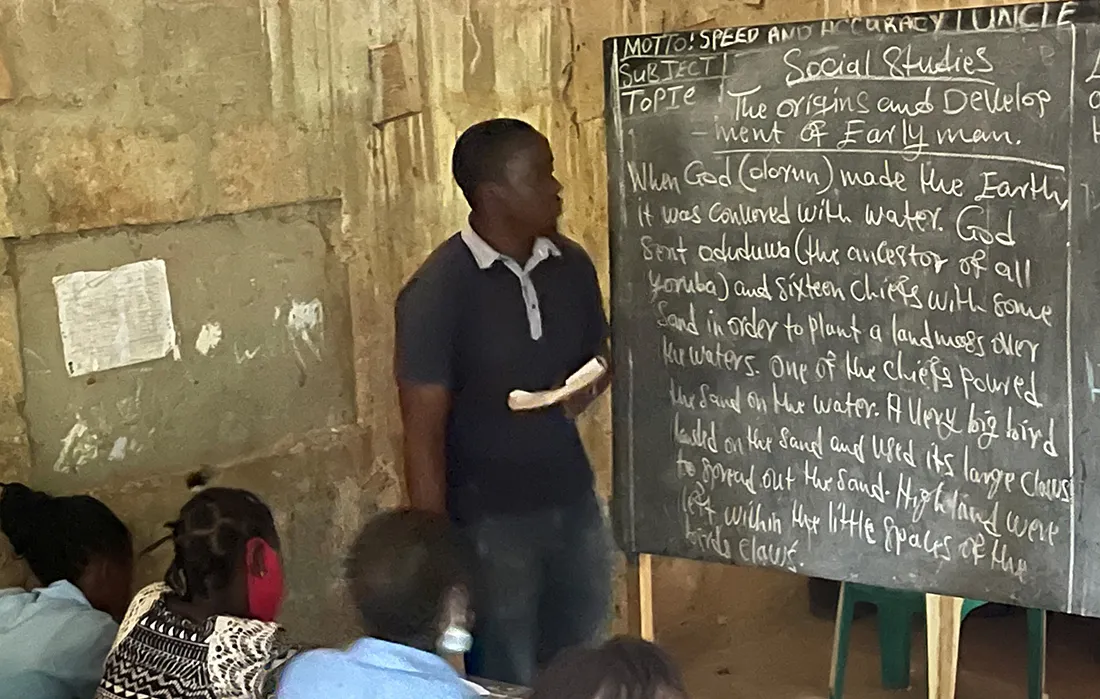 MOTTO! SPEED AND ACCURACY UNCLE
SUBJECT Social Studies
TOPIE The origins and Develop
- ment of Early man.
When God (olorun) made the Earth,
it was conuered with water. God
sent oduduwa (the ancestor of all
yoruba) and sixteen chiefs with some
sand in order to plant a landmass over
the waters. one of the chiefs poured
the sand on the water. A very big bird
landed on the sand and used its large claws
to spread out the sand. High land were
left within the little spaces of the
birds claws.